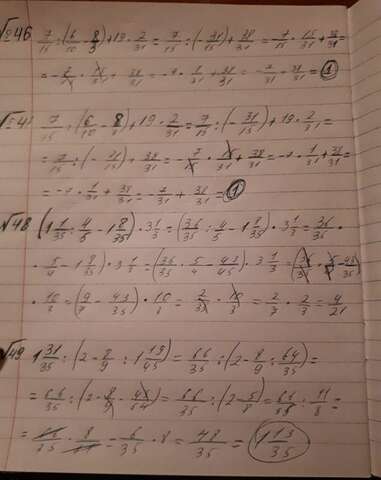 №46 7/15 : (6/10 - 8/3) + 19 · 2/31 = 7/15 : (-31/15) + 38/31 = -7/15 · 15/31 + 38/31 =
= -7/15 · 15/31 + 38/31 = -7 · 1/31 + 38/31 = -7/31 + 38/31 = 1
7/15 : (6/10 - 8/3) + 19 · 2/31 = 7/15 : (-31/15) + 19 · 2/31 =
= 7/15 : (-31/15) + 38/31 = -7/15 · 15/31 + 38/31 = -7 · 1/31 + 38/31 =
= -7 · 1/31 + 38/31 = -7/31 + 38/31 = 1
№48 (1 1/35 : 4/5 - 1 8/35) · 3 1/3 = (36/35 : 4/5 - 1 8/35) · 3 1/3 = (36/35 ·
· 5/4 - 1 8/35) · 3 1/3 = (36/35 · 5/4 - 43/35) · 3 1/3 =
· 10/3 = (9/7 - 43/35) · 10/3 = 2/35 · 10/3 = 2/7 · 2/3 = 4/21
№49 1 31/35 : (2 - 8/9 : 1 19/45) = 66/35 : (2 - 8/9 : 64/45) =
= 66/35 : (2 - 8/9 · 45/64) = 66/35 : (2 - 5/8) = 66/35 : 11/8 =
= 66/35 · 8/11 = 6/35 · 8 = 48/35 = 1 13/35